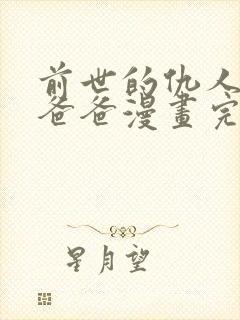 前世的仇人
爸爸漫畫完
星月望